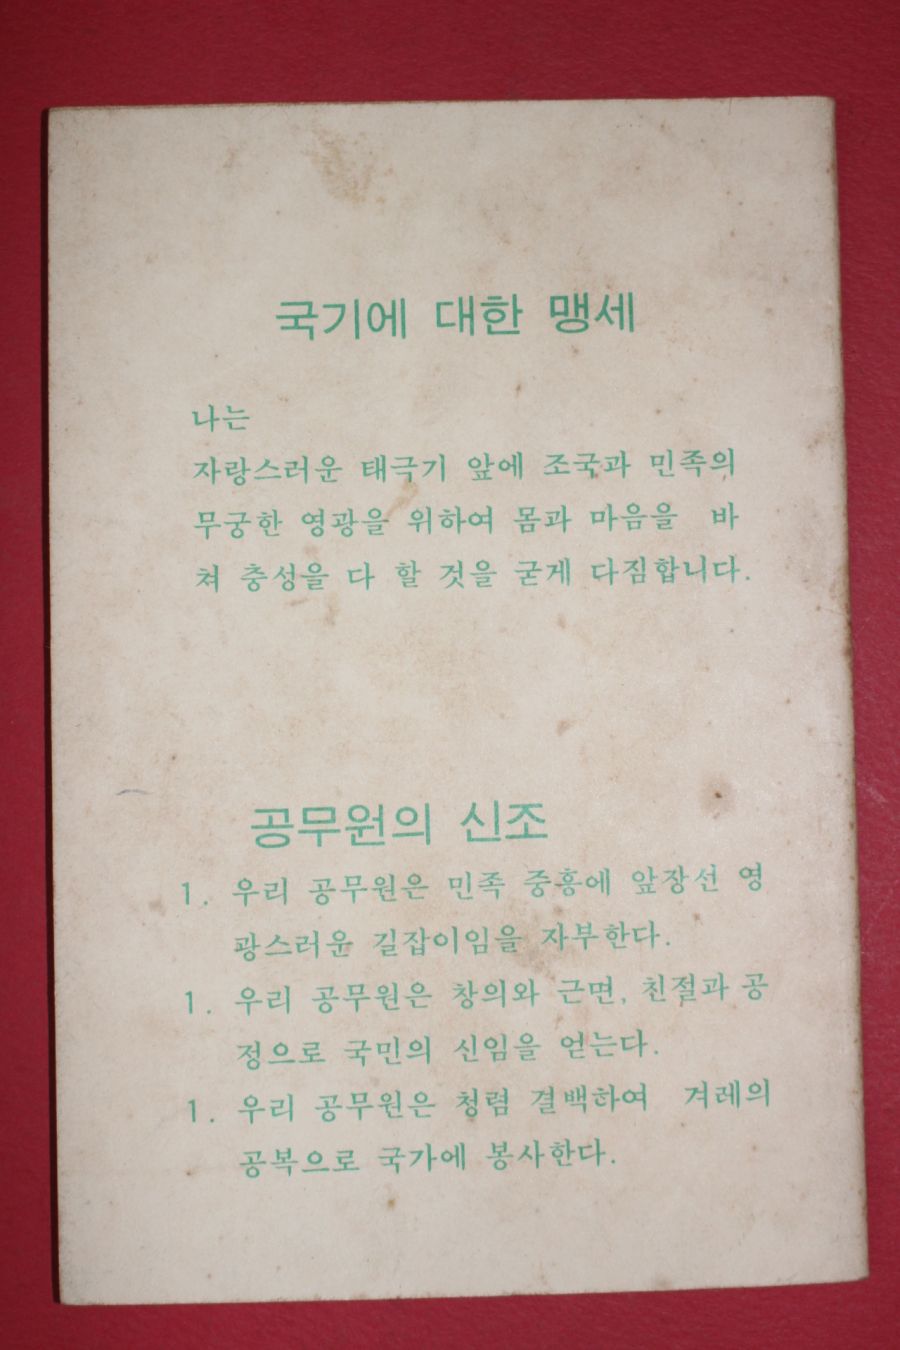 국기에 대한 맹세
나는
자랑스러운 태극기 앞에 조국과 민족의
무궁한 영광을 위하여 몸과 마음을 바
쳐 충성을 다 할 것을 굳게 다짐합니다.
공무원의 신조
1. 우리 공무원은 민족 중흥에 앞장선 영
광스러운 길잡이임을 자부한다.
1. 우리 공무원은 창의와 근면, 친절과 공
정으로 국민의 신임을 얻는다.
1. 우리 공무원은 청렴 결백하여 겨레의
공복으로 국가에 봉사한다.